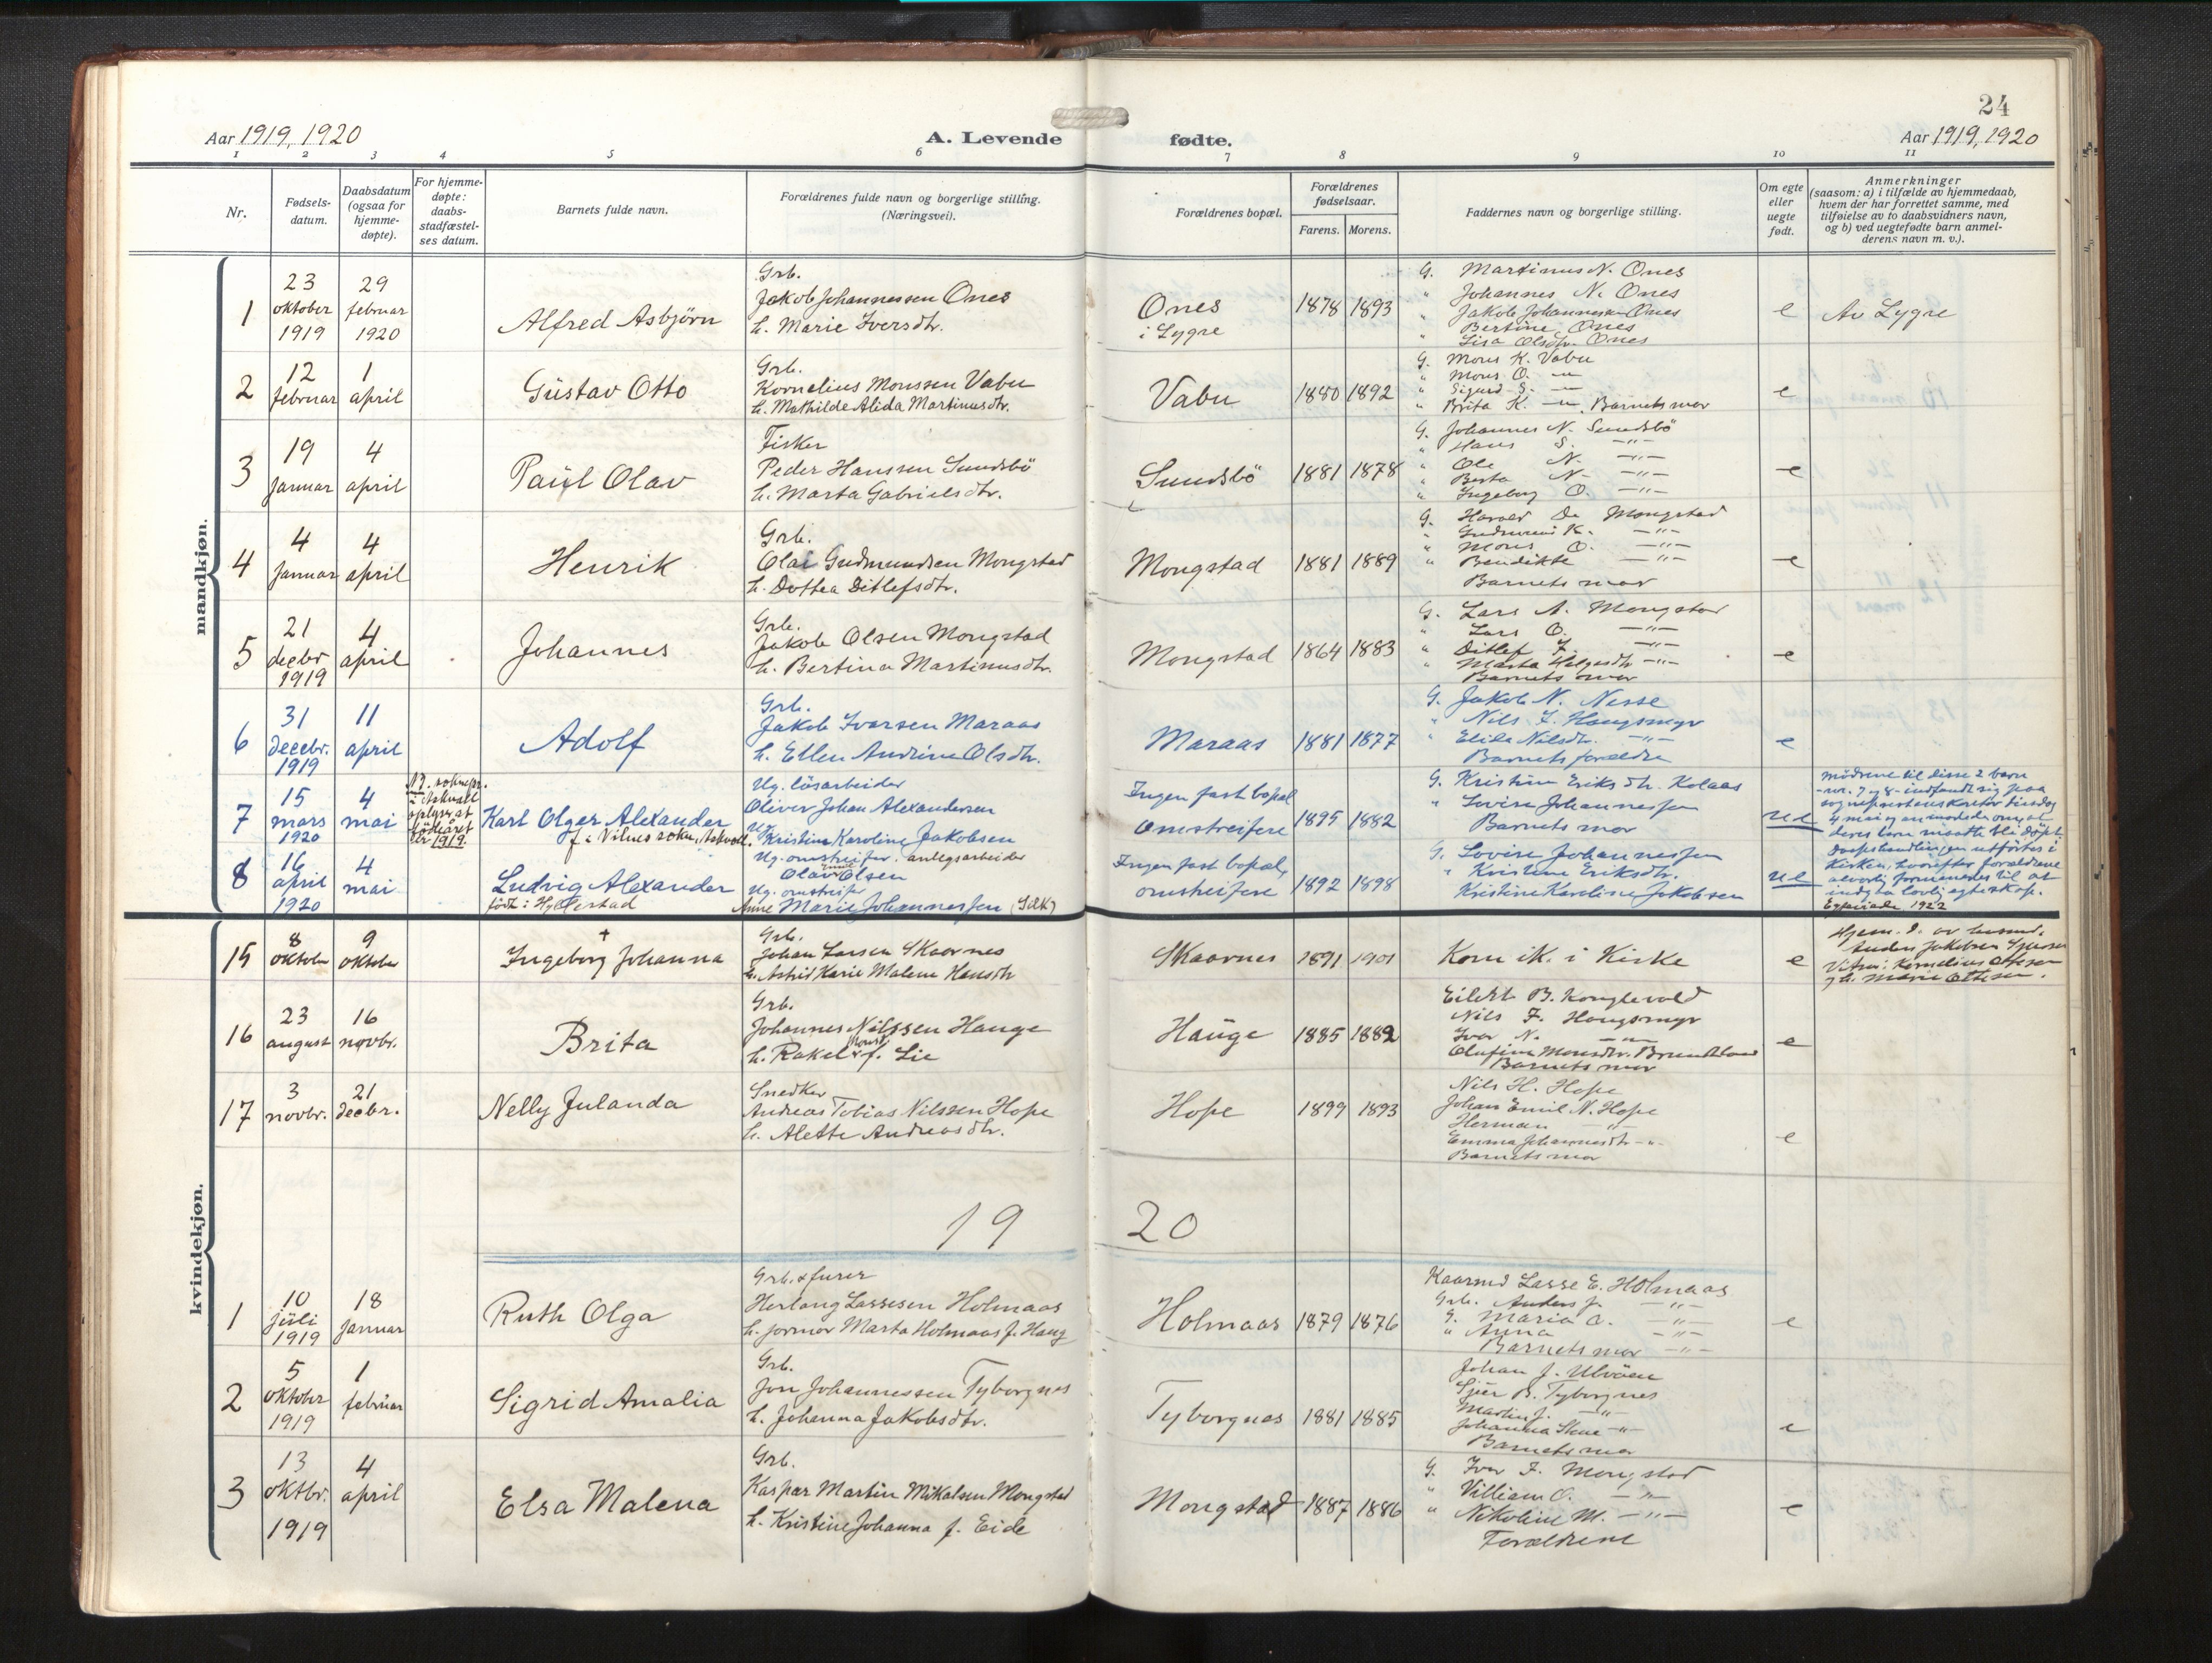 24
Aar 1919, 1920
A. Levende fødte.
Aar 1919, 1920
1 2 3 4 5 6 7 8 9 10 11
Nr.
Fødsels-
datum.
Daabsdatum
(ogsaa for
hjemme-
døpte).
For hjemme-
døpte:
daabs-
stadfæstel-
ses datum.
Barnets fulde navn.
Forældrenes fulde navn og borgerlige stilling.
(Næringsvei).
Forældrenes bopæl.
Forældrenes
fødselsaar.
Farens. Morens.
Faddernes navn og borgerlige stilling.
Om egte
eller
uegte
født.
Anmerkninger
(saasom: a) i tilfælde av hjemmedaab,
hvem der har forrettet samme, med
tilføielse av to daabsvidners navn,
og b) ved uegtefødte barn anmel-
derens navn m. v.).
mandkjøn.
1
23
oktober
1919
29
februar
1920
Alfred Asbjörn
Grb.
Jakob Johannessen Ones
h. Marie Iversdtr.
Ones
i Lygre
1878 1893
G. Martinus N. Ones
" Johannes N. Ones
" Jakob Johannessen Ones
" Bertine Ones
" Lisa Olsdtr. Ones
e
Av Lygre
2
12
februar
1
april
Gustav Otto
Grb.
Kornelius Monssen Vabu
h. Mathilde Alida Martinusdtr.
Vabu
1880 1892
G. Mons K. Vabu
" Mons O. -"-
" Sigurd S. -"-
" Brita K. -"- Barnets mor
e
3
19
januar
4
april
Paul Olav
Fisker
Peder Hanssen Sundsbö
h. Marta Gabrielsdtr.
Sundsbö
1881 1878
G. Johannes N. Sundsbö
" Hans S. -"-
" Ole N. -"-
" Berta N. -"-
" Ingeborg O. -"-
e
4
4
januar
4
april
Henrik
Grb.
Olai Gudmundsen Mongstad
h. Dortea Ditlefsdtr.
Mongstad
1881 1889
G. Harald O. Mongstad
" Gudmund K. -"-
" Mons O. -"-
" Bendikte -"-
Barnets mor
e
5
21
decbr
1919
4
april
Johannes
Grb.
Jakob Olsen Mongstad
h. Bertina Martinusdtr.
Mongstad
1864 1883
G. Lars A. Mongstad
" Lars O. -"-
" Ditlef J. -"-
" Marta Helgesdtr -"-
Barnets mor
e
6
31
decebr.
1919
11
april
Adolf
Grb.
Jakob Ivarsen Maraas
h. Ellen Andrine Olsdtr.
Maraas
1881 1877
G. Jakob N. Nesse
" Nils J. Hougsmyr
" Elida Nilsdtr. -"-
Barnets foreldre
e
7
15
mars
1920
4
mai
i Askvoll
oplyser at
födeåret
er 1919.
Karl Olger Alexander
f. i Vilnes sokn, Askvoll.
Ug. lösarbeider
Oliver Johan Alexandersen
Ug. Kristine Karoline Jakobsen
Ingen fast bopæl
Omstreifere
1895 1882
G. Kristine Eriksdtr. Kolaas
" Lovise Johannessen
Barnets mor
ue
Mödrene til disse 2 barn
-nr. 7 og 8- indfandt sig paa
sogneprestens kontor tirsdag
4 mai og anmodede om, at
deres barn maatte bli döpt.
Daapshandlingen utförtes i
kirken, hvorefter foreldrene
alvorlig formanedes til at
indgaa lovlig egteskap.
8
16
april
1920
4
mai
Ludvig Alexander
född i Hyllestad
Ug. omstreifer. anlegsarbeider
Olav Olsen
Ug. omstreifer
Anne Marie Johannessen
Ingen fast bopæl,
omstreifere
1892 1898
G. Lovise Johannessen
" Kristine Eriksdtr.
Kristine Karoline Jakobsen
ue
1922
kvindekjøn.
15
8
oktober
9
oktober
†
Ingeborg Johanna
Grb.
Johan Larsen Skaarnes
h. Astrid Karie Malene Hansdtr
Skaarnes
1891 1901
Kom ik. i Kirke
e
Hjem. d. av
Anders Jakobsen
Vitner: Kornelius Ottesen
og h. Marie Ottesen.
16
23
august
16
novbr.
Brita
Grb.
Johannes Nilssen Hauge
h. Rakel Monsd. f. Lie
Hauge
1885 1882
Eilert B. Konglevold
Nils J. Hougsmyr
Ivar N. -"-
Olufine Monsdtr. Brundtland
Barnets mor
e
17
3
novbr.
21
decbr.
Nelly Julanda
Snedker
Andreas Tobias Nilssen Hope
h. Alette Andreasdtr.
Hope
1899 1893
Nils H. Hope
Johan Emil N. Hope
Herman -"-
Emma Johannesdtr -"-
Barnets mor
e
19 20
1
10
juli
1919
18
januar
Ruth Olga
Grb. & furer
Herlaug Lassesen Holmaas
h. jormor Marta Holmaas f. Haug
Holmaas
1879 1876
Kaarmd Lasse E. Holmaas
Grb. Anders J. -"-
G. Maria A. -"-
" Anna -"-
Barnets mor -"-
e
2
5
oktober
1919
1
februar
Sigrid Amalia
Grb.
Jon Johannessen Tyborgnes
h. Johanna Jakobsdtr.
Tyborgnes
1881 1885
Johan J. Ulvöen
B. Tyborgnes
Martin J. -"-
Johanna -"-
Barnets mor
e
3
13
oktbr.
1919
4
april
Elsa Malena
Grb.
Kaspar Martin Mikalsen Mongstad
h. Kristine Johanna f. Eide
Mongstad
1887 1886
G. Ivar J. Mongstad
" Villiam O. -"-
" Nikoline M. -"-
Foreldrene
e